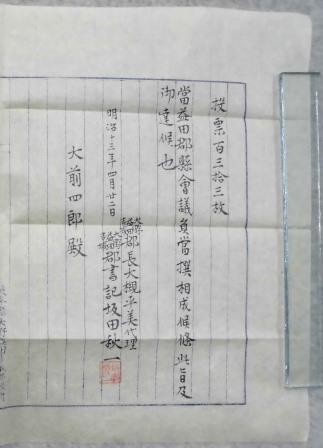 投票百三拾三枚
當益田郡縣會議員當撰相成候條此旨及
御達候也
明治十三年四月廿二日
郡長大槻平美代理
郡書記坂田秋一
大前四郎殿